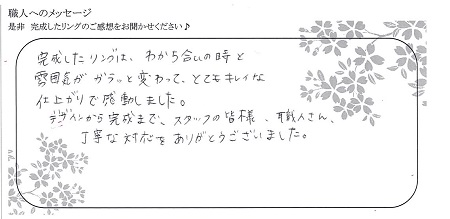 職人へのメッセージ
是非 完成したリングのご感想をお聞かせください♪
完成したリングは、わから合いの時と
雰囲気がガラッと変わって、とてもキレイな
仕上がりで感動しました。
デザインから完成まで、スタッフの皆様、職人さん、
丁寧な対応をありがとうございました。